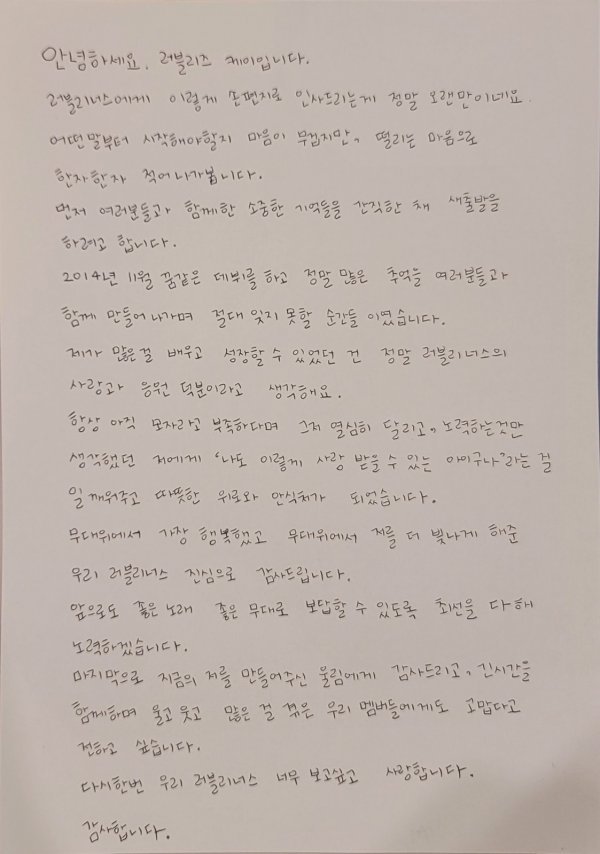 안녕하세요. 러블리즈 케이입니다.
러블리너스에게 이렇게 손편지로 인사드리는게 정말 오랜만이네요.
어떤말부터 시작해야할지 마음이 무겁지만, 떨리는 마음으로
한자한자 적어나가봅니다.
먼저 여러분들과 함께한 소중한 기억들을 간직한 채 새출발을
하려고 합니다.
2014년 11월 꿈같은 데뷔를 하고 정말 많은 추억을 여러분들과
함께 만들어 나가며 절대 잊지 못할 순간들 이였습니다.
제가 많은걸 배우고 성장할 수 있었던 건 정말 러블리너스의
사랑과 응원 덕분이라고 생각해요.
항상 아직 모자라고 부족하다며 그저 열심히 달리고, 노력하는것만
생각했던 저에게 '나도 이렇게 사랑 받을 수 있는 아이구나'라는 걸
일깨워주고 따뜻한 위로와 안식처가 되었습니다.
무대위에서 가장 행복했고 무대위에서 저를 더 빛나게 해준
우리 러블리너스 진심으로 감사드립니다.
앞으로도 좋은 노래 좋은 무대로 보답할 수 있도록 최선을 다해
노력하겠습니다.
마지막으로 지금의 저를 만들어주신 울림에게 감사드리고, 긴시간을
함께하며 울고 웃고 많은 걸 겪은 우리 멤버들에게도 고맙다고
전하고 싶습니다.
다시한번 우리 러블리너스 너무 보고싶고 사랑합니다.
감사합니다.